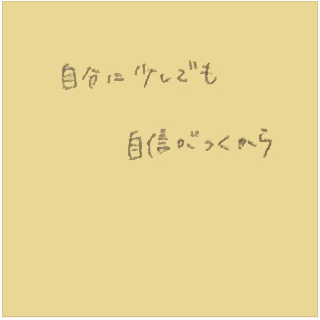 自分に少しでも
自信がつくから